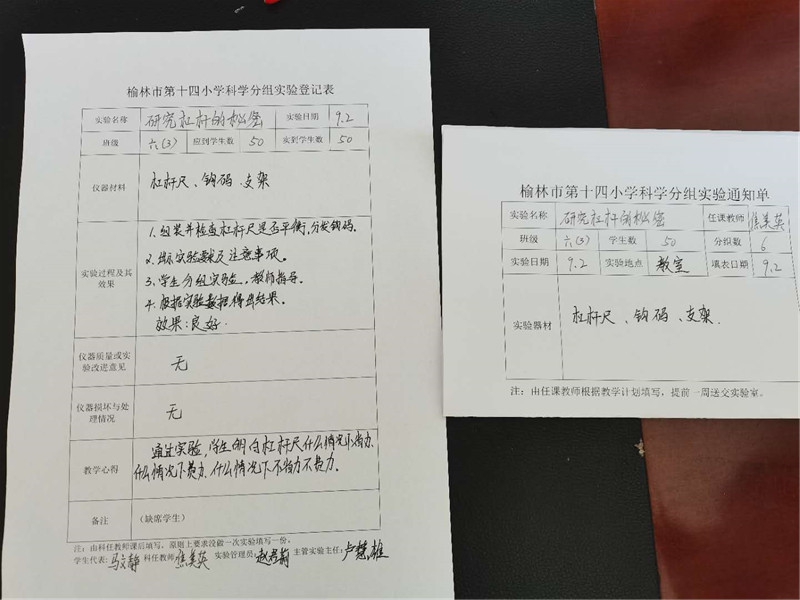 榆林市第十四小学科学分组实验登记表
实验名称 研究杠杆的秘密 实验日期 9.2
班级 六(3) 应到学生数 50 实到学生数 50
仪器材料 杠杆尺、钩码、支架
1.组装并检查杠杆尺是否平衡,分发钩码。
2.出示实验要求及注意事项。
实验过程及其效果
3.学生分组实验,教师指导。
4.根据实验数据得出结果。
效果:良好.
仪器质量或实验改进意见 无
仪器损坏与处理情况 无
通过实验,学生明白杠杆尺什么情况下省力,
教学心得 什么情况下费力、什么情况下不省力不费力。
备注 (缺席学生)
注:由科任教师课后填写,原则上要求没做一次实验填写一份。
学生代表:马文静 科任教师:焦美英 实验管理员:赵君莉 主管实验主任:卢慧雄
榆林市第十四小学科学分组实验通知单
实验名称 研究杠杆的秘密 任课教师 焦美英
班级 六(3) 学生数 50 分组数 6
实验日期 9.2 实验地点 教室 填表日期 9.2
实验器材 杠杆尺、钩码、支架.
注:由任课教师根据教学计划填写,提前一周送交实验室。